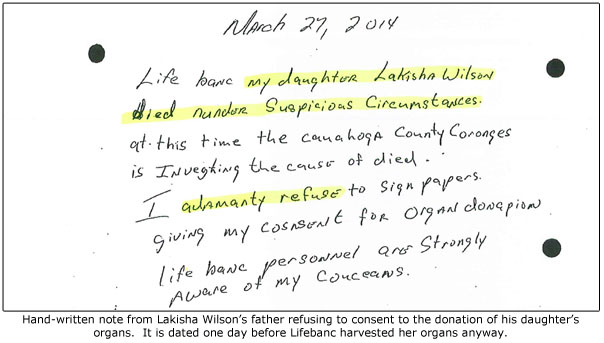 March 27, 2014
Life banc my daughter Lakisha Wilson
died nundor Suspicious Circumstances.
at this time the cauahoga County Coronges
is Inveghting the cause of died.
I adamanty refuse to sign papers.
giving my cosnsent for organ donapion
life banc personnel are strongly
aware of my couceans.
Hand-written note from Lakisha Wilson's father refusing to consent to the donation of his daughter's
organs.  It is dated one day before Lifebanc harvested her organs anyway.